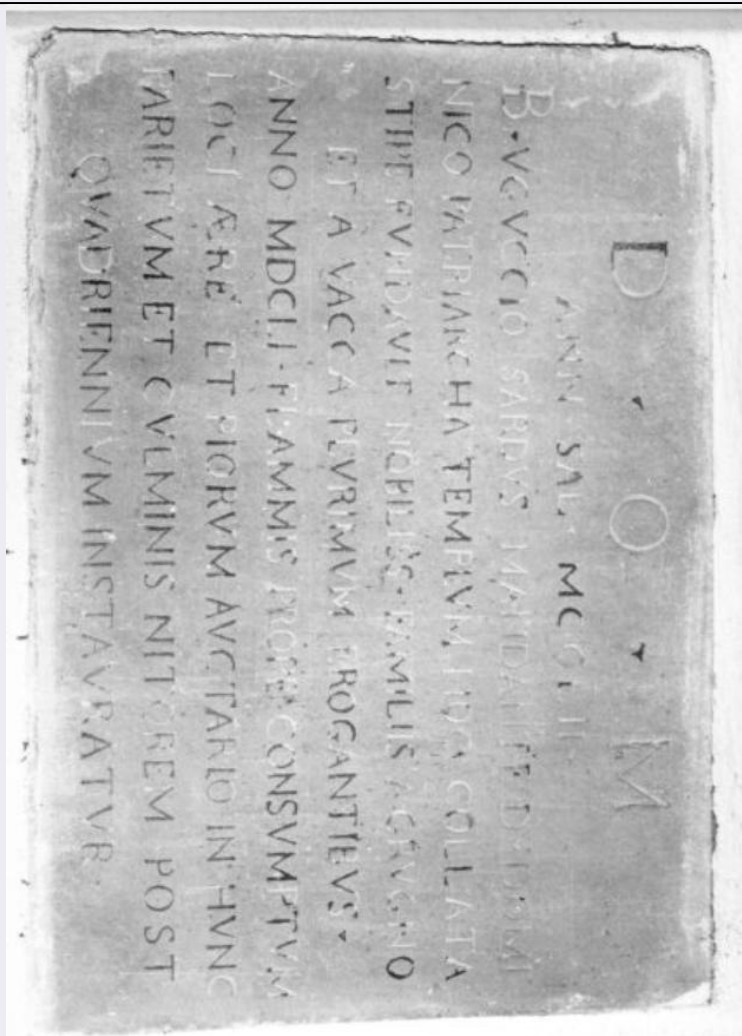 D • O • M
ANN SAL
B • VGVCCIO SARDVS
NICO PATRIARCHA TEMPLVM COLLATA
STIPE FVNDAVIT NOBILIBS FAMILIS
ET A VACCA PLVRIMVM EROGANTIBVS •
ANNO MDCLI • FLAMMIS PROPE CONSVMPTVM
LOCI ÆRE ET PIORVM AVCTARIO IN HVNC
PARIETVM ET CVLMINIS NITOREM POST
QVADRIENNIVM INSTAVRATVR